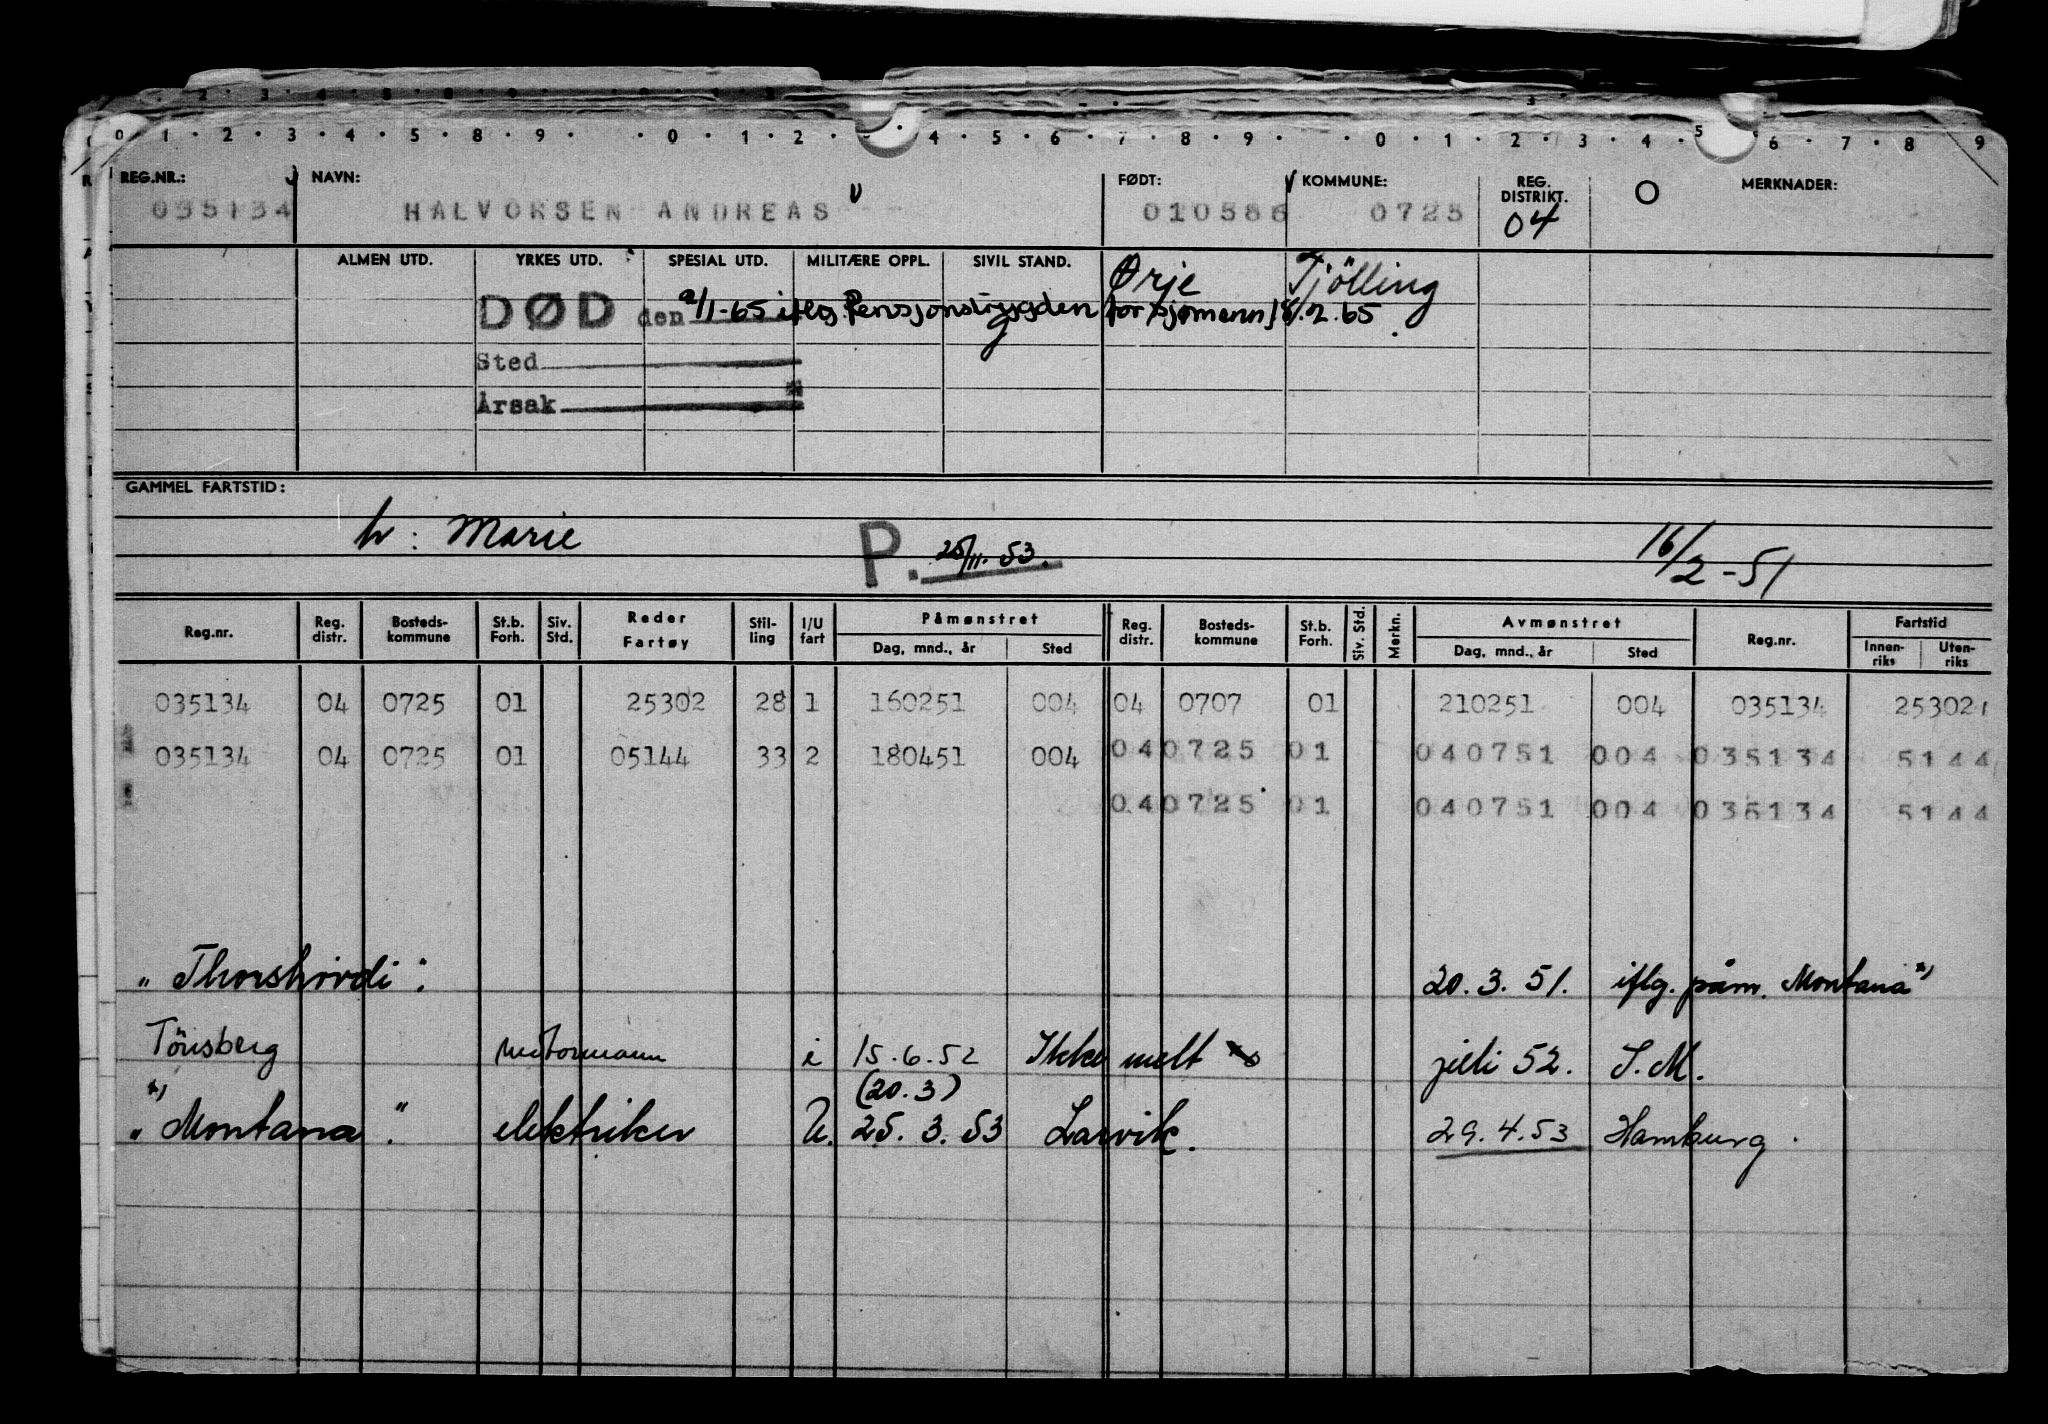 0 1 . 2 . 3 . 4 . 5 . 8 . 9 . . 0 . 1 . 2 . . 4 . 5 . 6 . 7 . 8 . 9 . . 0 . 1 . 2 . 3 . 4 . 5 . 6 . 7 . 8 . 9
REG.NR.: NAVN: FØDT: KOMMUNE: REG. DISTRIKT. O MERKNADER:
035134 HALVORSEN ANDREAS 010586 0725 04
ALMEN UTD. YRKES UTD. SPESIAL UTD. MILITÆRE OPPL. SIVIL STAND. Ørje Tjölling
DØD den 9/1-65 iflg. Pensjonstrygden for sjømenn, 18/2.65
Sted
Årsak
GAMMEL FARTSTID:
h: Marie P. 25/11.53. 16/2-51
Reg.nr. Reg. distr. Bosteds-kommune St.b. Forh. Siv. Std. Reder Fartøy Stil-ling I/U fart Påmønstret Dag, mnd., år Sted Reg. distr. Bosteds-kommune St.b. Forh. Siv. Std. Merkn. Avmønstret Dag, mnd., år Sted Reg.nr. Fartstid Innen-riks Uten-riks
035134 04 0725 01 25302 28 1 160251 004 04 0707 01 210251 004 035134 25302
035134 04 0725 01 05144 33 2 180451 004 040725 01 040751 004 035134 5144
040725 01 040751 004 035134 5144
"Thorshövdi". 20.3.51. iflg. påm. Montana *)
Tönsberg motormann i 15.6.52 Ikke melt juli 52. S.M.
(20.3)
*) "Montana". elektriker U. 25.3.53 Larvik. 29.4.53 Hamburg.